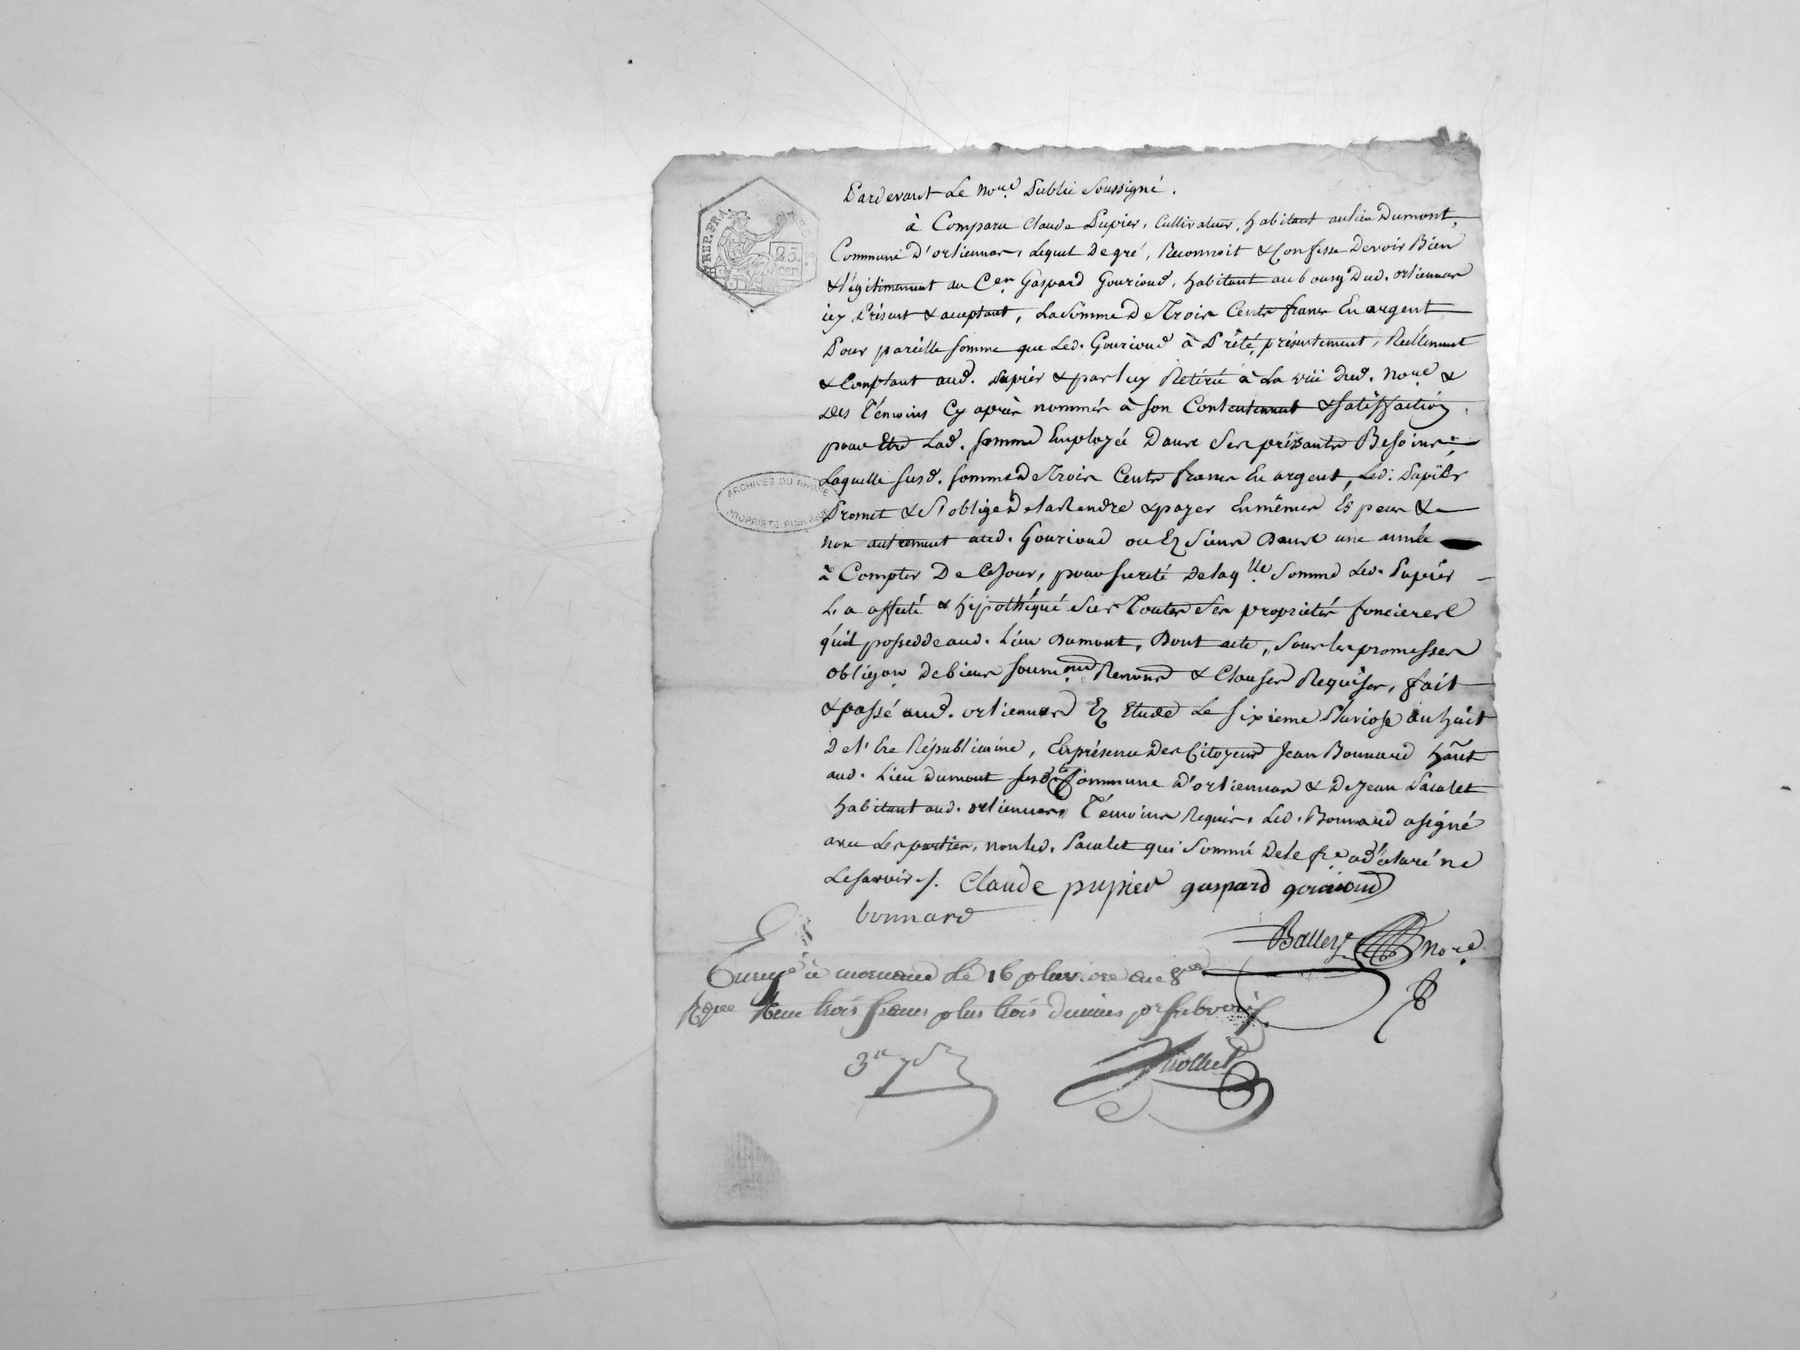 Pardevant Le no.re Public Soussigné.
à Comparu Claude Pupier, Cultivateur, habitant au lieu Dumont,
Commune d'orliennas, Lequel de gré, Reconnoit & Confesse Devoir Bien
& légitimement au C.en Gaspard Gourioud, habitant au bourg Dud. orliennas
icy Présent & acceptant, La Somme De Trois Cents francs En argent
Pour pareille somme que Led. Gourioud à Prêté, présentement, Réellement
& Comptant aud. Pupier & par luy Retiré à La vüe dud. no.re &
Des Témoins Cy après nommés à son Contentement & satisfaction,
pour Etre Lad. somme Employée Dans Ses préssants Besoins,
Laquelle susd. somme de Trois Cents francs En argent, Led. Pupier
Promet & S'oblige De la Rendre & payer En mêmes Especes &
non autrement aud. Gourioud ou Ez Siens Dans une année
à Compter De Ce Jour, pour sureté de laq.lle Somme Led. Pupier
L'a affecté & hypothéqué Sur Toutes Ses propriétés foncieres
qu'il possedde aud. Lieu Dumont, Dont acte, Sous les promesses
obligon de biens soum.ons Renons & Clauses Requises, fait
& passé aud. orliennas Ez Etude Le sixieme Pluviose an huit
De l'Ere Républicaine, En présence Des Citoyens Jean Bonnard hãnt
aud. Lieu dumont susd.te Commune d'orliennas & De Jean Pacalet
habitant aud. orliennas, Témoins Requis, Led. Bonnard a signé
avec Les parties, non led. Pacalet qui Sommé De le f.re a déclaré ne
Le savoir ./. Claude pupier gaspard gourioud
bonnard
Balley no.re
ARCHIVES DU RHONE
PROPRIÉTÉ PUBLIQUE
REP. FRA.
25
CEN.
Enregé à mornand Le 16 pluviose an 8
Reçu trois francs plus trois decimes pr subvon.